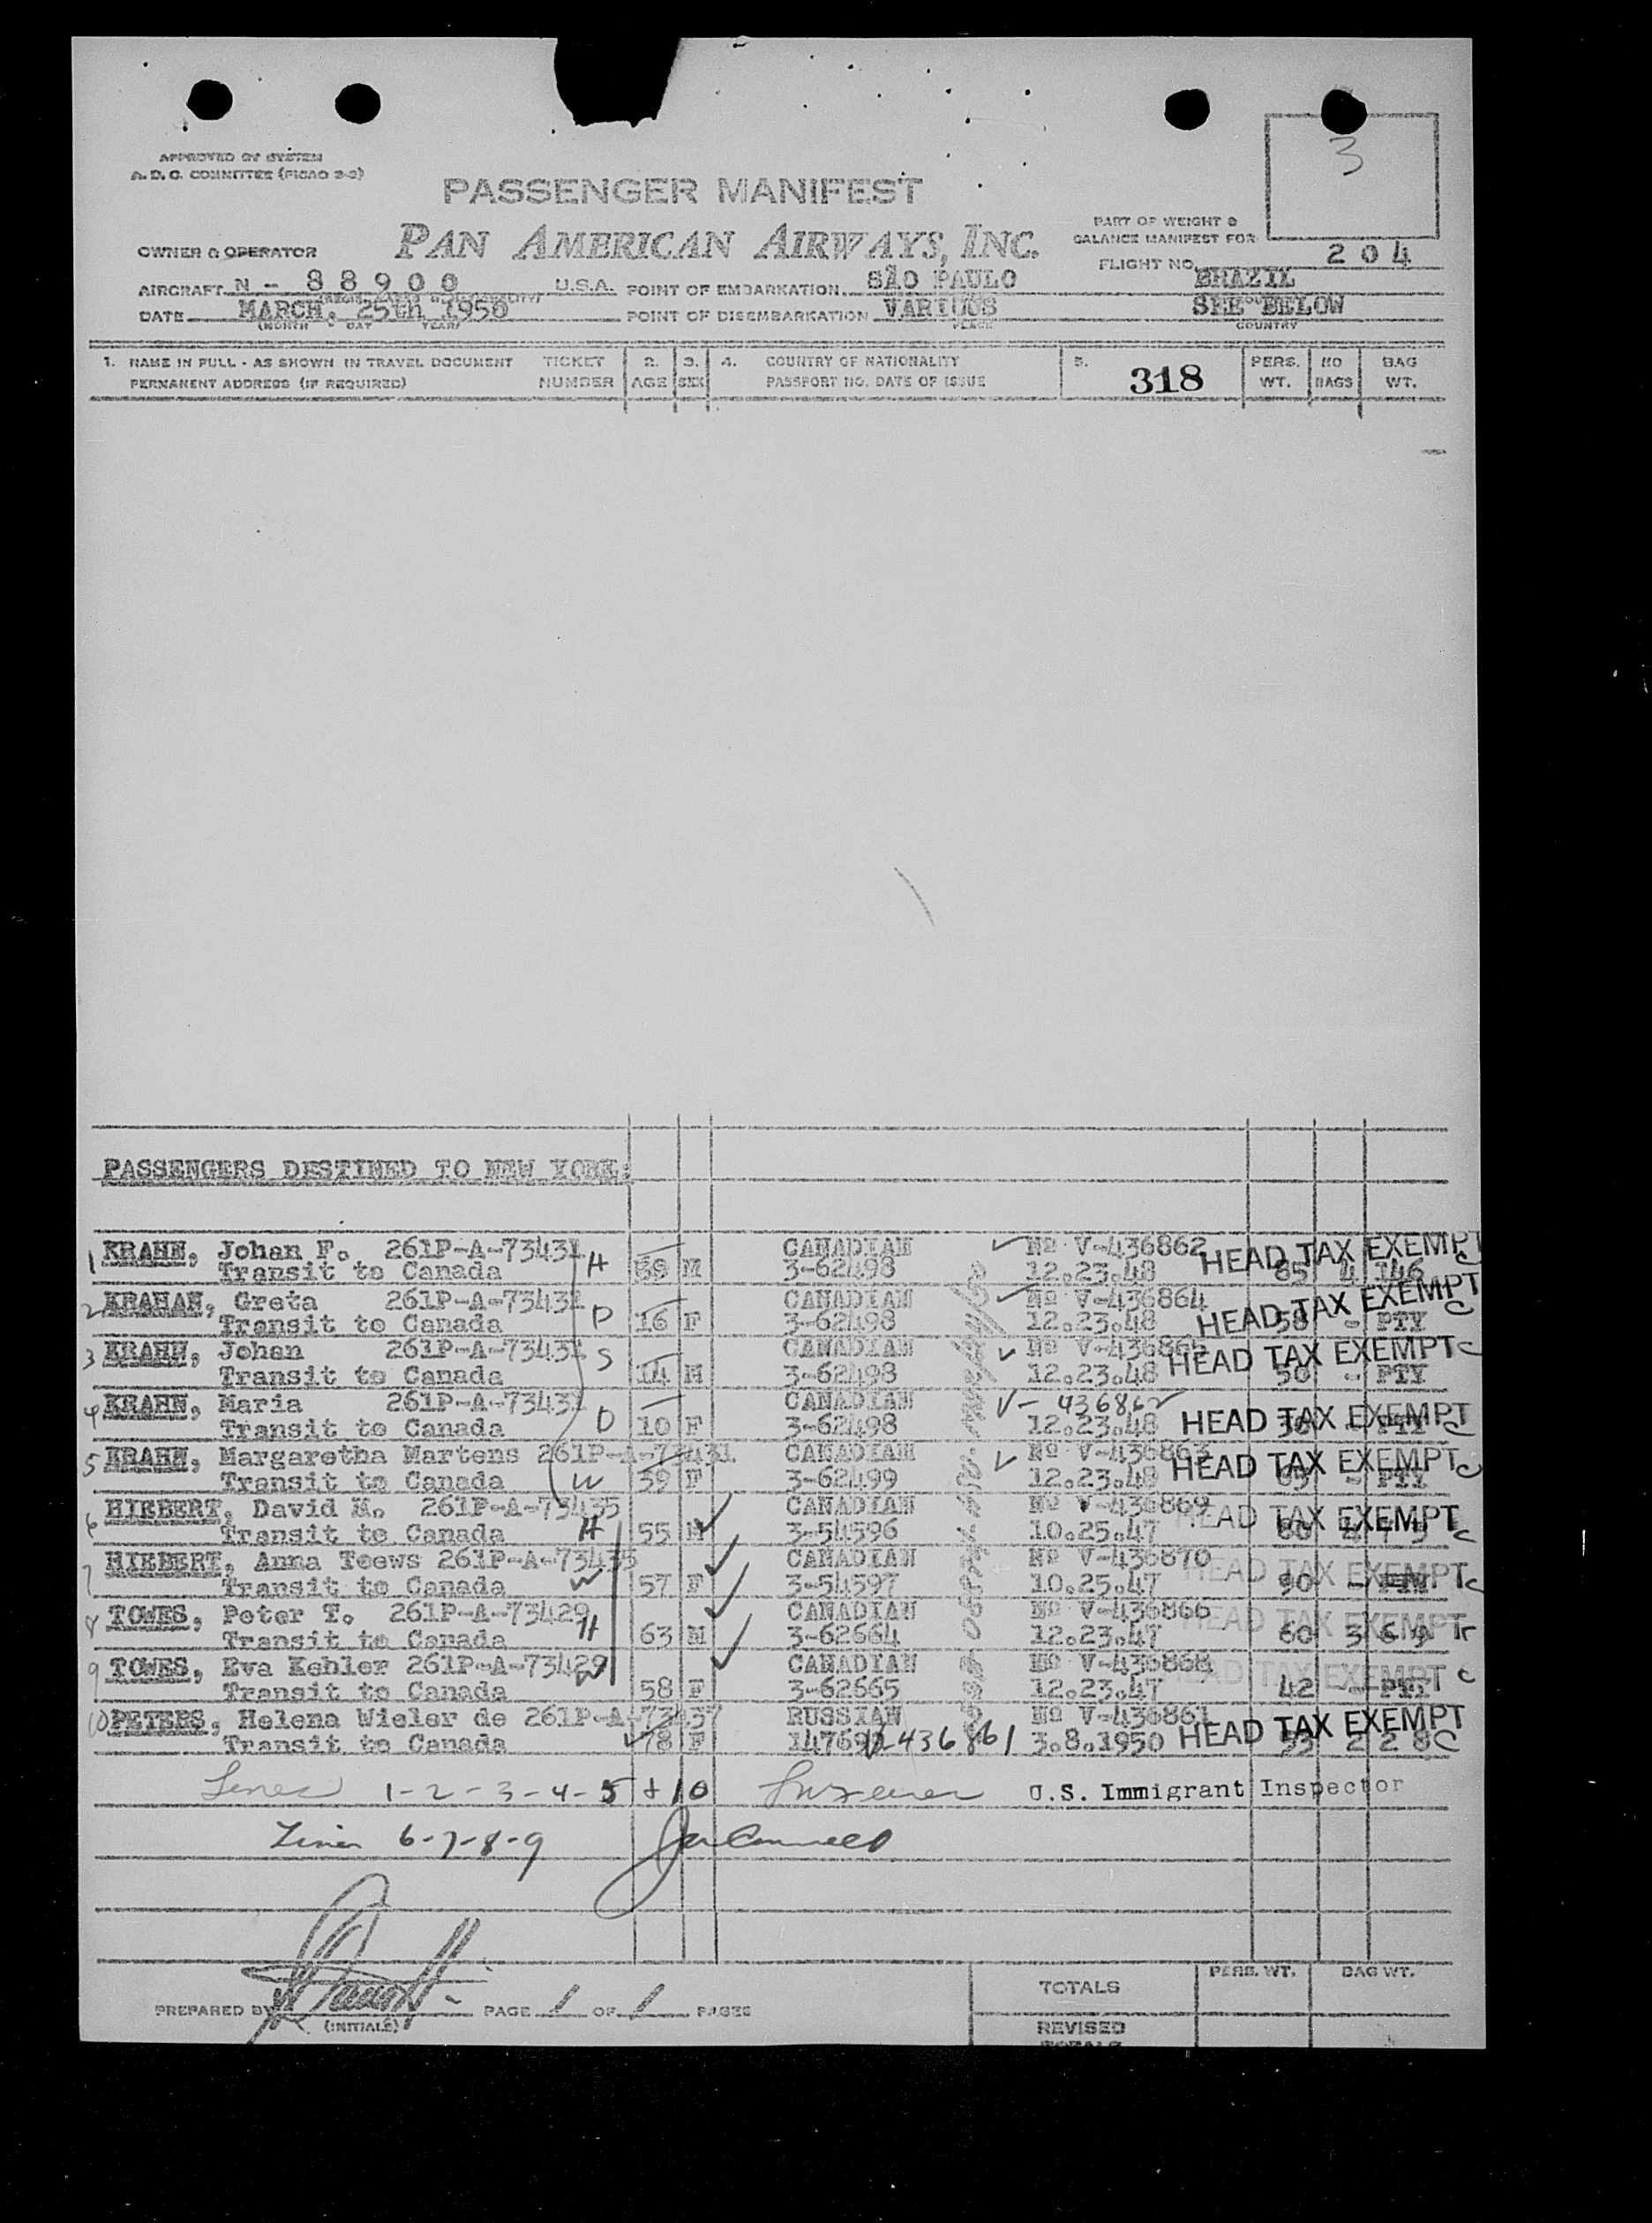 3
APPROVED BY SYSTEM
A.D.C. COMMITTEE (PICAO 2-3)
PASSENGER MANIFEST
PART OF WEIGHT &
BALANCE MANIFEST FOR
OWNER & OPERATOR PAN AMERICAN AIRWAYS, INC.
FLIGHT NO. 204
AIRCRAFT N - 88900 U.S.A. POINT OF EMBARKATION SÃO PAULO BRAZIL
DATE MARCH, 25th 1950 POINT OF DISEMBARKATION VARIOUS SEE BELOW
(MONTH DAY YEAR) PLACE COUNTRY
1. NAME IN FULL - AS SHOWN IN TRAVEL DOCUMENT TICKET 2. 3. 4. COUNTRY OF NATIONALITY 5. 318 PERS. NO BAG
PERMANENT ADDRESS (IF REQUIRED) NUMBER AGE SEX PASSPORT NO. DATE OF ISSUE WT. BAGS WT.
PASSENGERS DESTINED TO NEW YORK:
1 KRAHN, Johan F. 261P-A-73431 CANADIAN Nº V-436862 HEAD TAX EXEMPT
Transit to Canada H 39 M 3-62498 12.23.48 85 4 146 C
2 KRAHAN, Greta 261P-A-73431 CANADIAN Nº V-436864 HEAD TAX EXEMPT
Transit to Canada D 16 F 3-62498 12.23.48 58 - PTY C
3 KRAHN, Johan 261P-A-73431 S CANADIAN Nº V-436865 HEAD TAX EXEMPT C
Transit to Canada 14 M 3-62498 12.23.48 50 - PTY
4 KRAHN, Maria 261P-A-73431 CANADIAN V-436862
Transit to Canada D 10 F 3-62498 12.23.48 HEAD TAX EXEMPT 30 - PTY C
5 KRAHN, Margaretha Martens 261P-A-73431 CANADIAN Nº V-436863 HEAD TAX EXEMPT C
Transit to Canada W 39 F 3-62499 12.23.48 65 - PTY
6 HIEBERT, David M. 261P-A-73435 CANADIAN Nº V-436869 HEAD TAX EXEMPT
Transit to Canada H 55 M 3-54596 10.25.47 80 C
7 HIEBERT, Anna Toews 261P-A-73435 CANADIAN Nº V-436870 HEAD TAX EXEMPT C
Transit to Canada W 57 F 3-54597 10.25.47 90 -
8 TOWES, Peter T. 261P-A-73429 CANADIAN Nº V-436866 HEAD TAX EXEMPT
Transit to Canada H 63 M 3-62664 12.23.47 60 3 6 9 Tr
9 TOWES, Eva Kehler 261P-A-73429 CANADIAN Nº V-436868 HEAD TAX EXEMPT C
Transit to Canada W 58 F 3-62665 12.23.47 42 - PTY
10 PETERS, Helena Wieler de 261P-A-73437 RUSSIAN Nº V-436861 HEAD TAX EXEMPT
Transit to Canada 78 F 14769 V-436861 3.8.1950 53 2 28 C
Lines 1-2-3-4-5 + 10 U.S. Immigrant Inspector
Lines 6-7-8-9
PREPARED BY PAGE 1 OF 1 PAGES
(INITIALS)
TOTALS PERS. WT. BAG WT.
REVISED
TOTALS